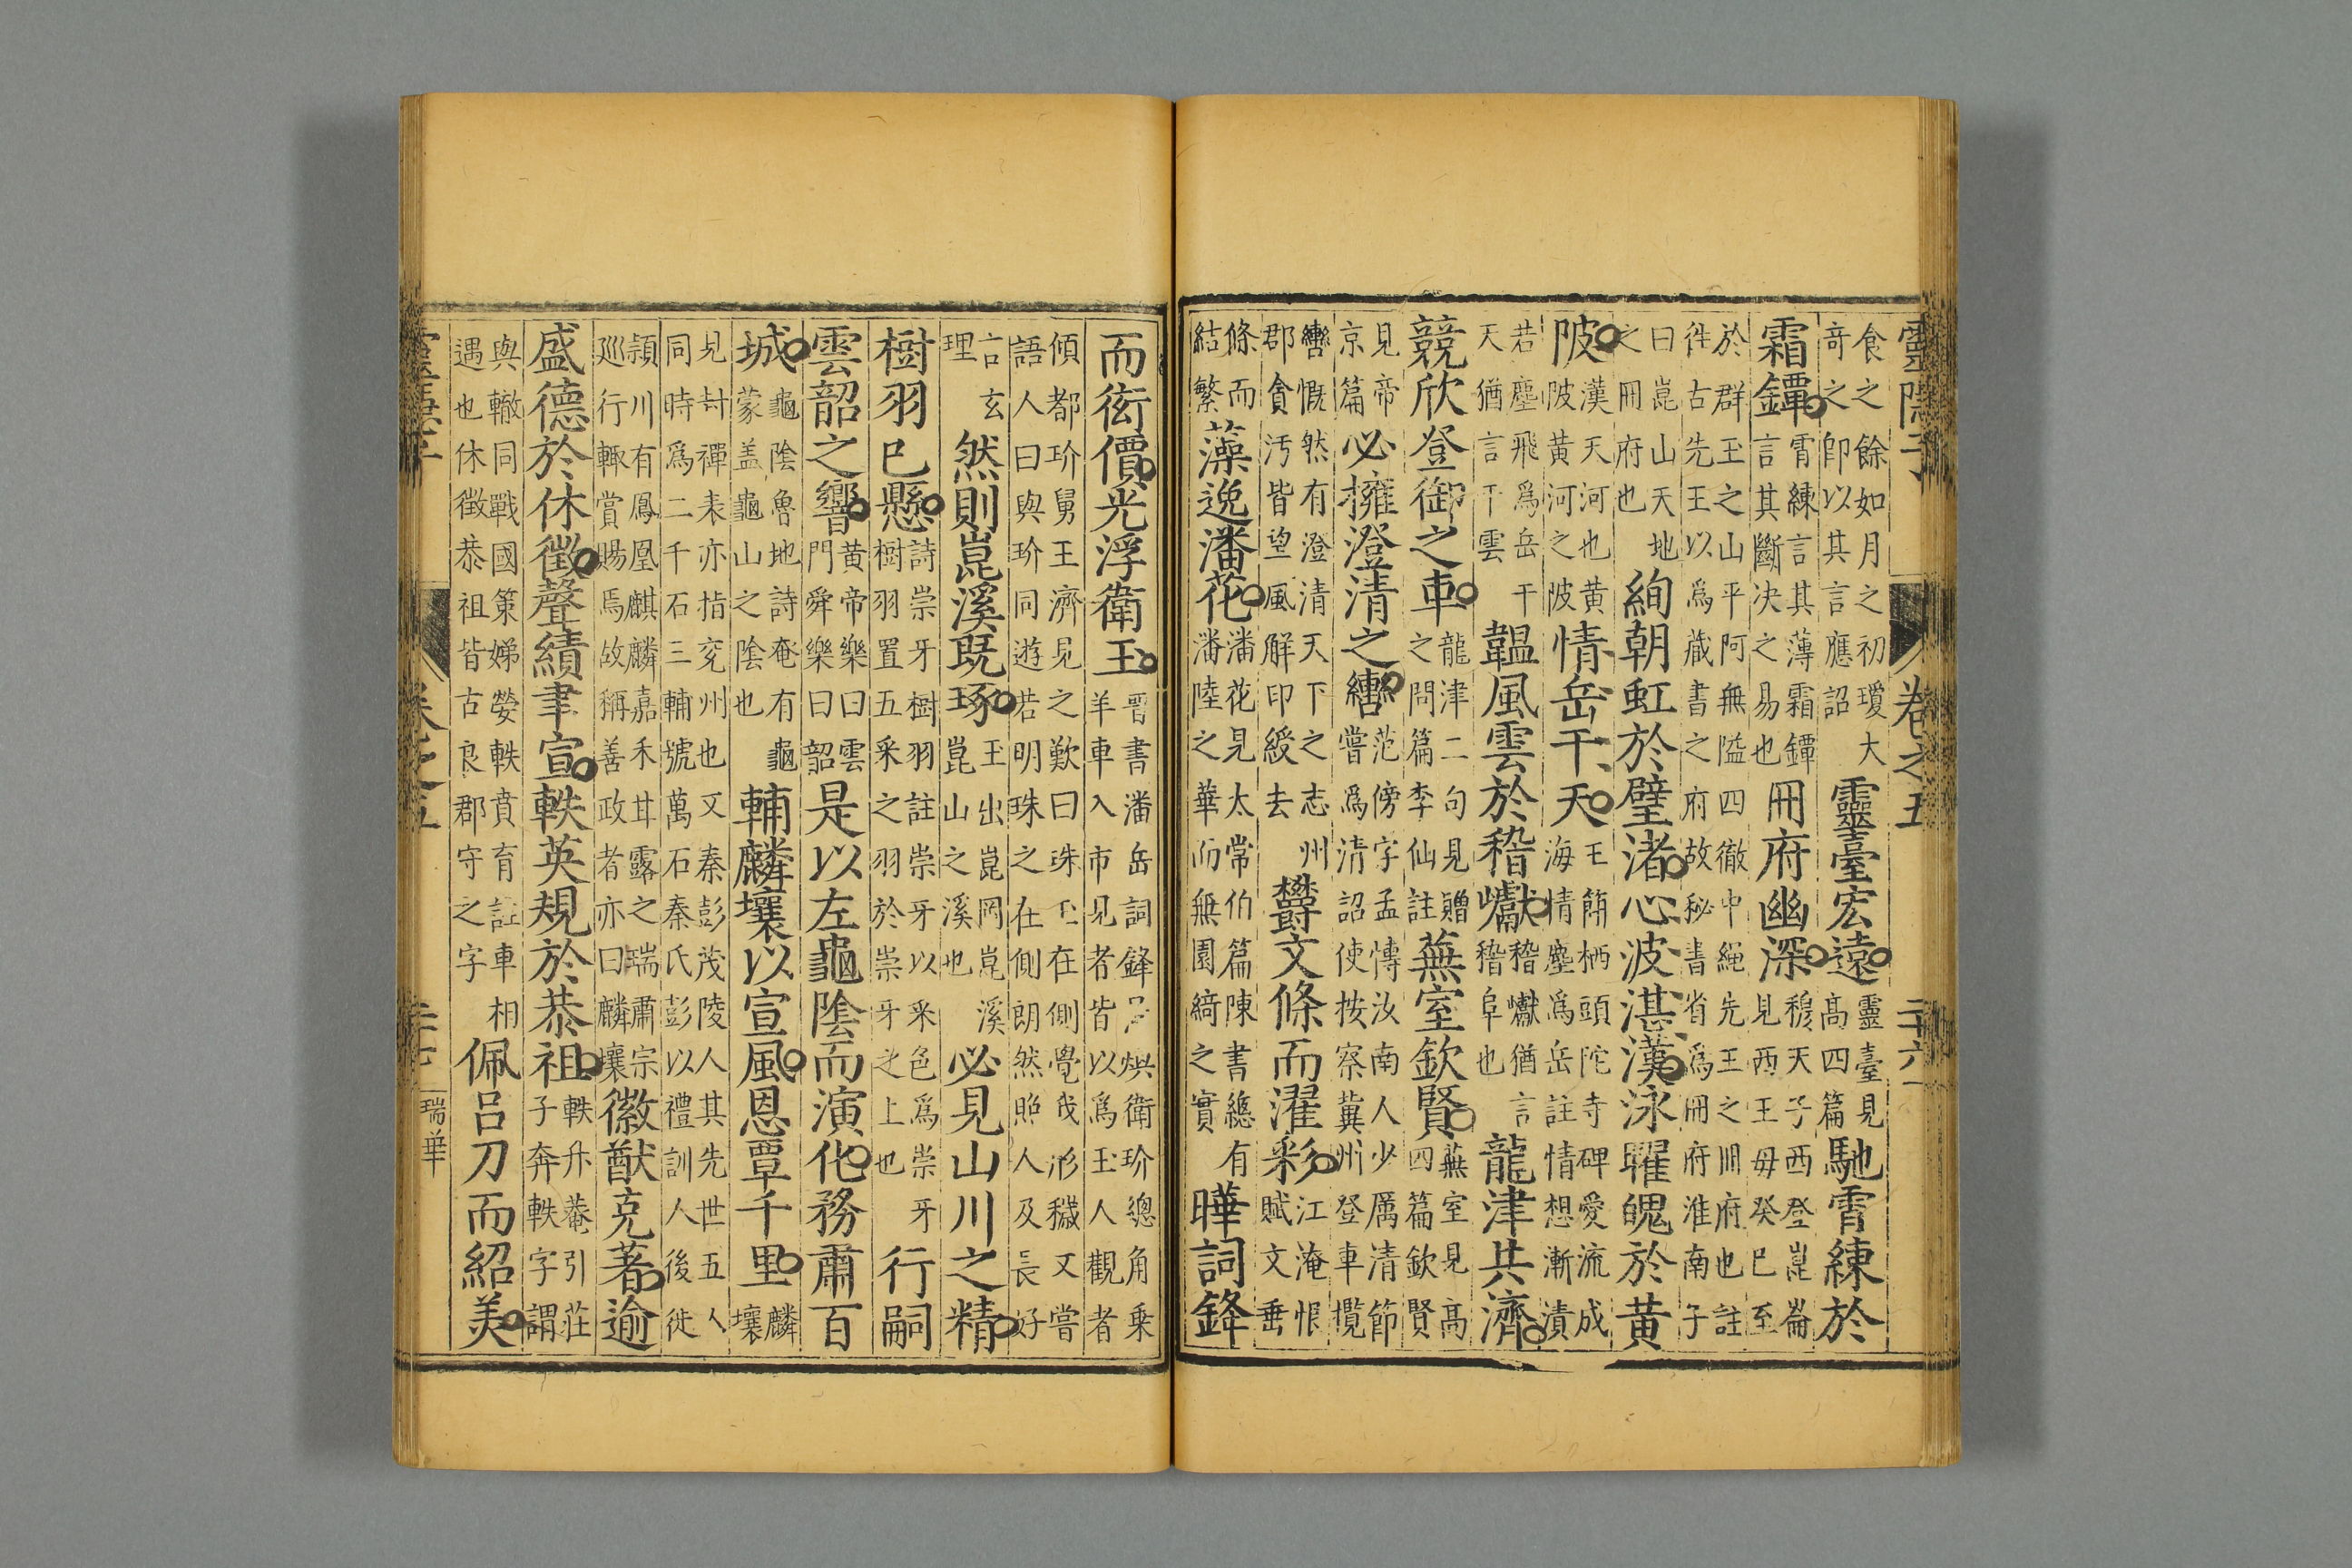 靈隱子　卷之五　二十六
食之餘如月之初瓊大
奇之卽以其言應詔
靈臺宏遠
靈臺見
高四篇
馳霄練於
霜鐔
霄練言其薄霜鐔
言其斷决之易也
冊府幽深
穆天子西登崑崙
見西王母癸巳至
於群玉之山平阿無隘四徹中繩先王之冊府也註
徃古先王以爲藏書之府故秘書省爲冊府淮南子
曰崑山天地
之冊府也
絢朝虹於璧渚心波湛漢泳曜魄於黃
陂
漢天河也黃
陂黃河之陂
情岳干天
王簡栖頭陀寺碑愛流成
海情塵爲岳註情想漸漬
若塵飛爲岳干
天猶言干雲
韞風雲於嵇巘
嵇巘猶言
嵇阜也
龍津共濟
競欣登御之車
龍津二句見贈
之問篇李仙註
蕪室欽賢
蕪室見高
四篇欽賢
見帝
京篇
必擁澄清之轡
范傍字孟博汝南人少厲清節
嘗爲清詔使按察冀州登車攬
轡慨然有澄清天下之志州
郡貪汚皆望風解印綬去
欝文條而濯彩
江淹恨
賦文垂
條而
結繁
藻逸潘花
潘花見太常伯篇陳書緫有
潘陸之華而無園綺之實
曄詞鋒
而衒價光浮衛玉
晋書潘岳詞鋒 煥衛玠總角乘
羊車入市見者皆以爲玉人觀者
傾都玠舅王濟見之歎曰珠玉在側覺我形穢又嘗
語人曰與玠同遊若明珠之在側朗然照人及長好
言玄
理
然則崑溪既琢
玉出崑岡崑溪
崑山之溪也
必見山川之精
樹羽已懸
詩崇牙樹羽註崇牙以采色爲崇牙
樹羽置五采之羽於崇牙之上也
行嗣
雲韶之響
黃帝樂曰雲
門舜樂曰韶
是以左龜陰而演化務肅百
城
龜陰魯地詩奄有龜
蒙盖龜山之陰也
輔麟壤以宣風恩覃千里
麟
壤
見封禪表亦指兗州也又秦彭茂陵人其先世五人
同時爲二千石三輔號萬石秦氏彭以禮訓人後徙
頴川有鳳凰麒麟嘉禾甘露之瑞肅宗
巡行輒賞賜焉故稱善政者亦曰麟壤
徽猷克著逾
盛德於休徵聲績聿宣軼英規於恭祖
軼升菴引莊
子奔軼字謂
與轍同戰國策娣嫈軼賁育註車相
遇也休徵恭祖皆古良郡守之字
佩呂刀而紹美
瑞華